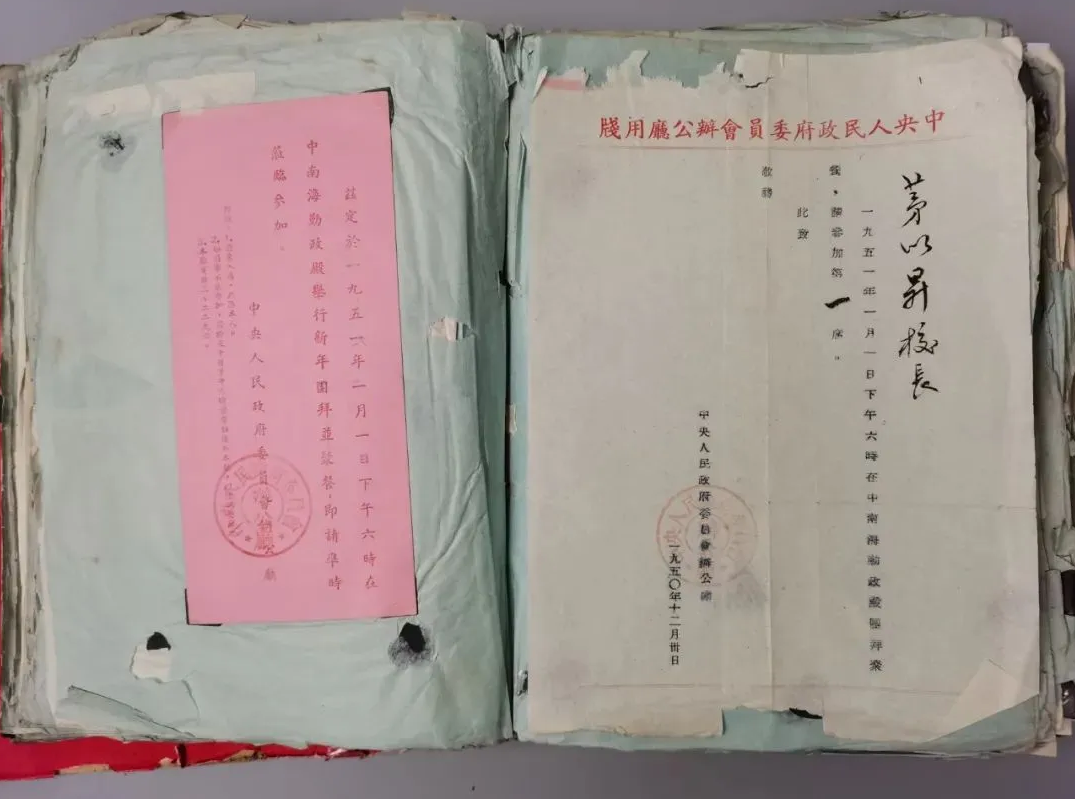 中央人民政府委員會辦公廳用牋
茅以昇校長
一九五一年一月一日下午六時在中南海勤政殿團拜聚
餐，請參加第一席。
此致
敬禮
中央人民政府委員會辦公廳
一九五〇年十二月卅日
茲定於一九五一年一月一日下午六時在
中南海勤政殿舉行新年團拜並聚餐，即請準時
蒞臨參加。
中央人民政府委員會辦公廳